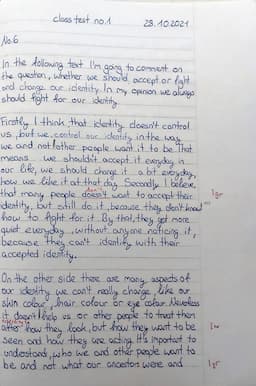 class test no.1 28.10.2021
No.6
In the following text I'm going to comment on
the question, whether we should accept or fight
and change our identity. In my opinion we always
should fight for our identity.
Firstly I think that identity doesn't control
us, but we control our identity in the way
we and not other people want it to be. That
means we shouldn't accept it everyday in
our life, we should change it a bit everyday,
how we like it at that day. Secondly I believe
that many people doesn't want to accept their
identity, but still do it, because they don't know
how to fight for it. By that, they get more
quiet everyday, without anyone noticing it,
because they can't identify with their
accepted identity.
On the other side there are many aspects of
our identity we can't really change, like our
skin colour, hair colour or eye colour. Neverless
it doesn't help us or other people to treat them
after how they look, but how they want to be
seen and how they are acting. It's important to
understand, who we and other people want to
be and not what our ancestors were and